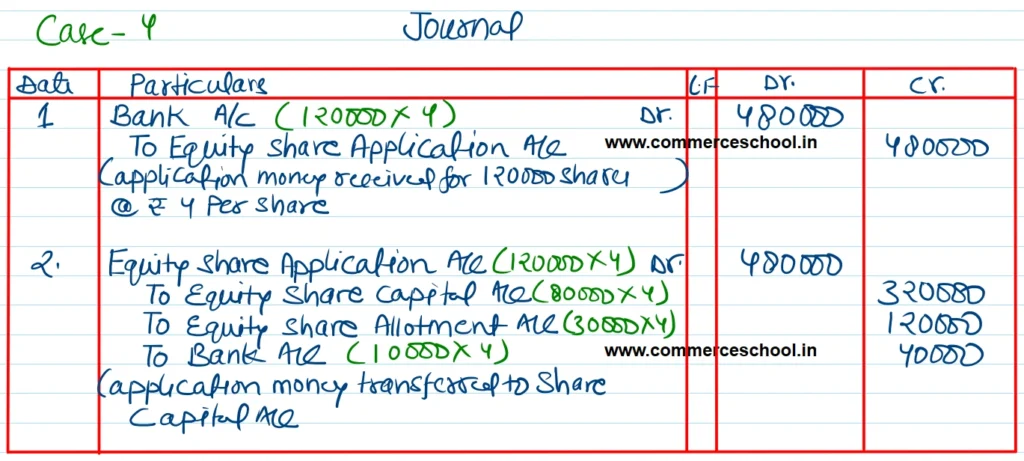 Case - 4 Journal
Data Particulars LF Dr. Cr.
1 Bank A/c (120000 X 4) Dr. 480000
To Equity Share Application A/c www.commerceschool.in 480000
(application money received for 120000 shares)
@ ₹ 4 Per Share
2. Equity Share Application A/c (120000 X 4) Dr. 480000
To Equity Share Capital A/c (80000 X 4) 320000
To Equity Share Allotment A/c (30000 X 4) 120000
To Bank A/c (10000 X 4) www.commerceschool.in 40000
(application money transferred to Share
Capital A/c